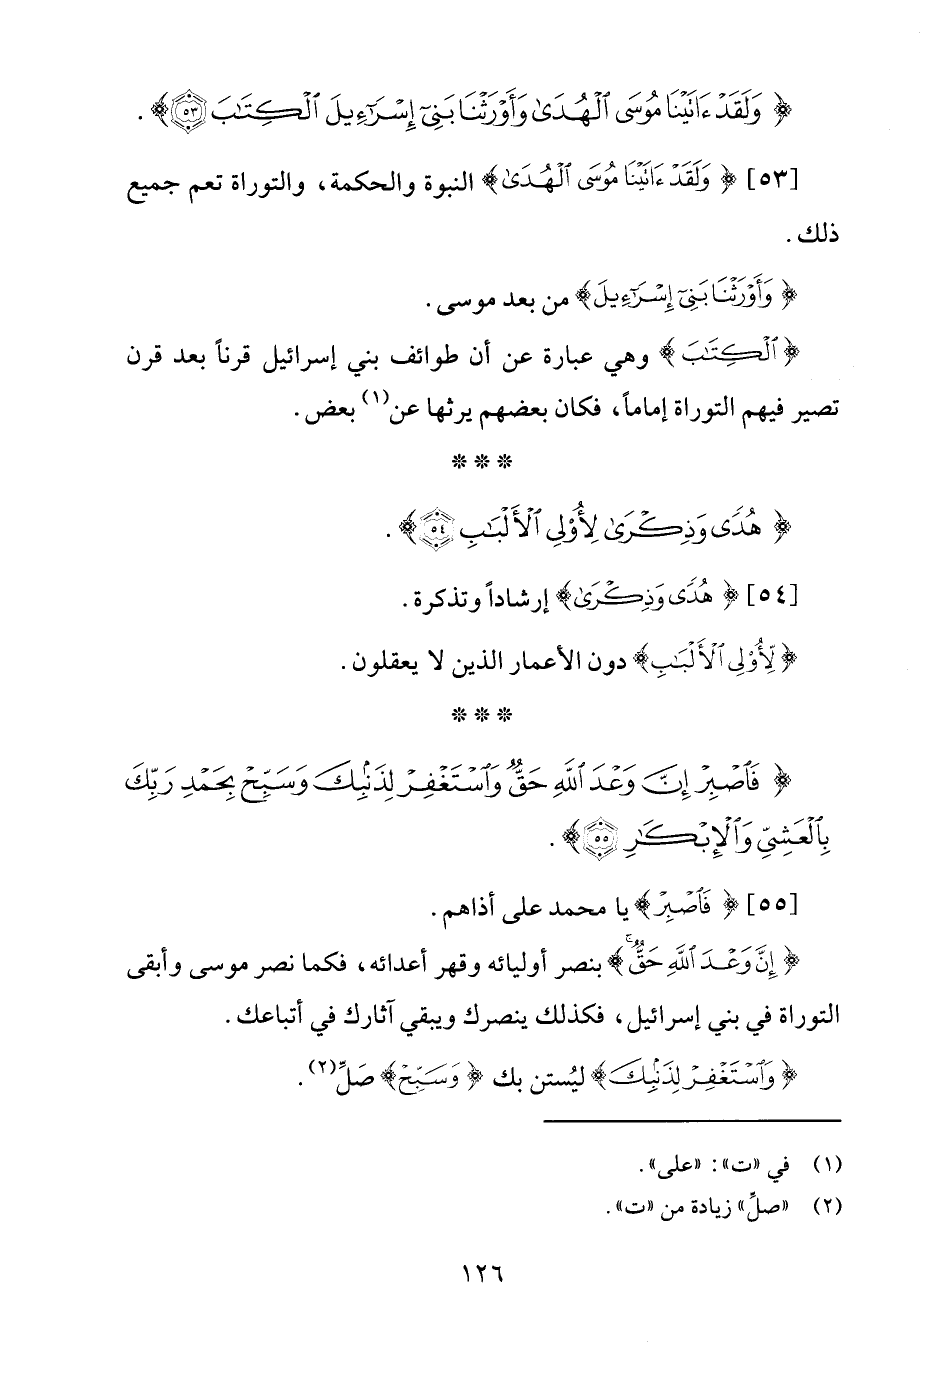 ﴿ وَلَقَدْ ءَاتَيْنَا مُوسَى ٱلْهُدَىٰ وَأَوْرَثْنَا بَنِىٓ إِسْرَٰٓءِيلَ ٱلْكِتَٰبَ ٥٣ ﴾ .
[٥٣] ﴿ وَلَقَدْ ءَاتَيْنَا مُوسَى ٱلْهُدَىٰ ﴾ النبوة والحكمة، والتوراة تعم جميع
ذلك .
﴿ وَأَوْرَثْنَا بَنِىٓ إِسْرَٰٓءِيلَ ﴾ من بعد موسى .
﴿ ٱلْكِتَٰبَ ﴾ وهي عبارة عن أن طوائف بني إسرائيل قرناً بعد قرن
تصير فيهم التوراة إماماً، فكان بعضهم يرثها عن(١) بعض .
* * *
﴿ هُدًى وَذِكْرَىٰ لِأُو۟لِى ٱلْأَلْبَٰبِ ٥٤ ﴾ .
[٥٤] ﴿ هُدًى وَذِكْرَىٰ ﴾ إرشاداً وتذكرة .
﴿ لِأُو۟لِى ٱلْأَلْبَٰبِ ﴾ دون الأعمار الذين لا يعقلون .
* * *
﴿ فَٱصْبِرْ إِنَّ وَعْدَ ٱللَّهِ حَقٌّ وَٱسْتَغْفِرْ لِذَنۢبِكَ وَسَبِّحْ بِحَمْدِ رَبِّكَ
بِٱلْعَشِىِّ وَٱلْإِبْكَٰرِ ٥٥ ﴾ .
[٥٥] ﴿ فَٱصْبِرْ ﴾ يا محمد على أذاهم .
﴿ إِنَّ وَعْدَ ٱللَّهِ حَقٌّ ﴾ بنصر أوليائه وقهر أعدائه، فكما نصر موسى وأبقى
التوراة في بني إسرائيل، فكذلك ينصرك ويبقي آثارك في أتباعك .
﴿ وَٱسْتَغْفِرْ لِذَنۢبِكَ ﴾ ليُستن بك ﴿ وَسَبِّحْ ﴾ صَلِّ(٢) .
(١) في «ت»: «على» .
(٢) «صلِّ» زيادة من «ت» .
١٢٦